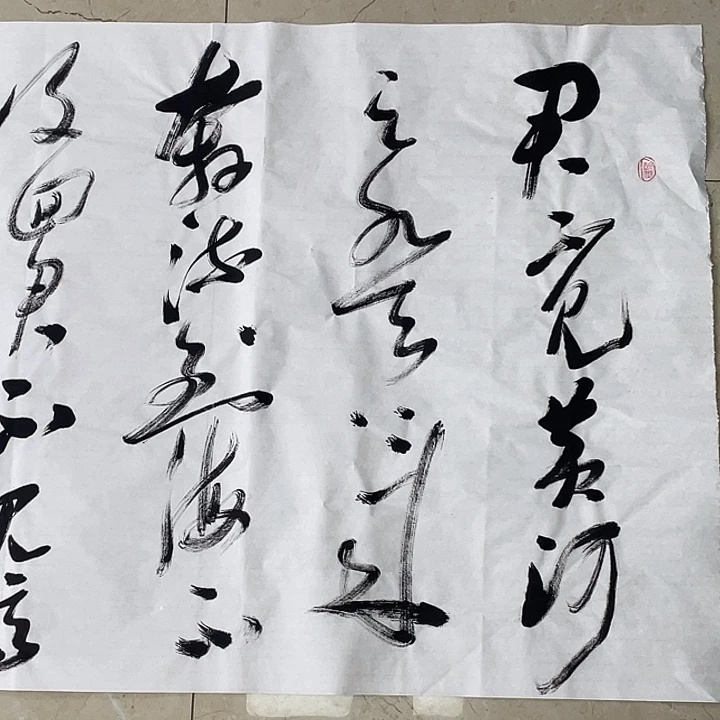 君不見黄河
之水天上来
奔流到海不
復回君不見高